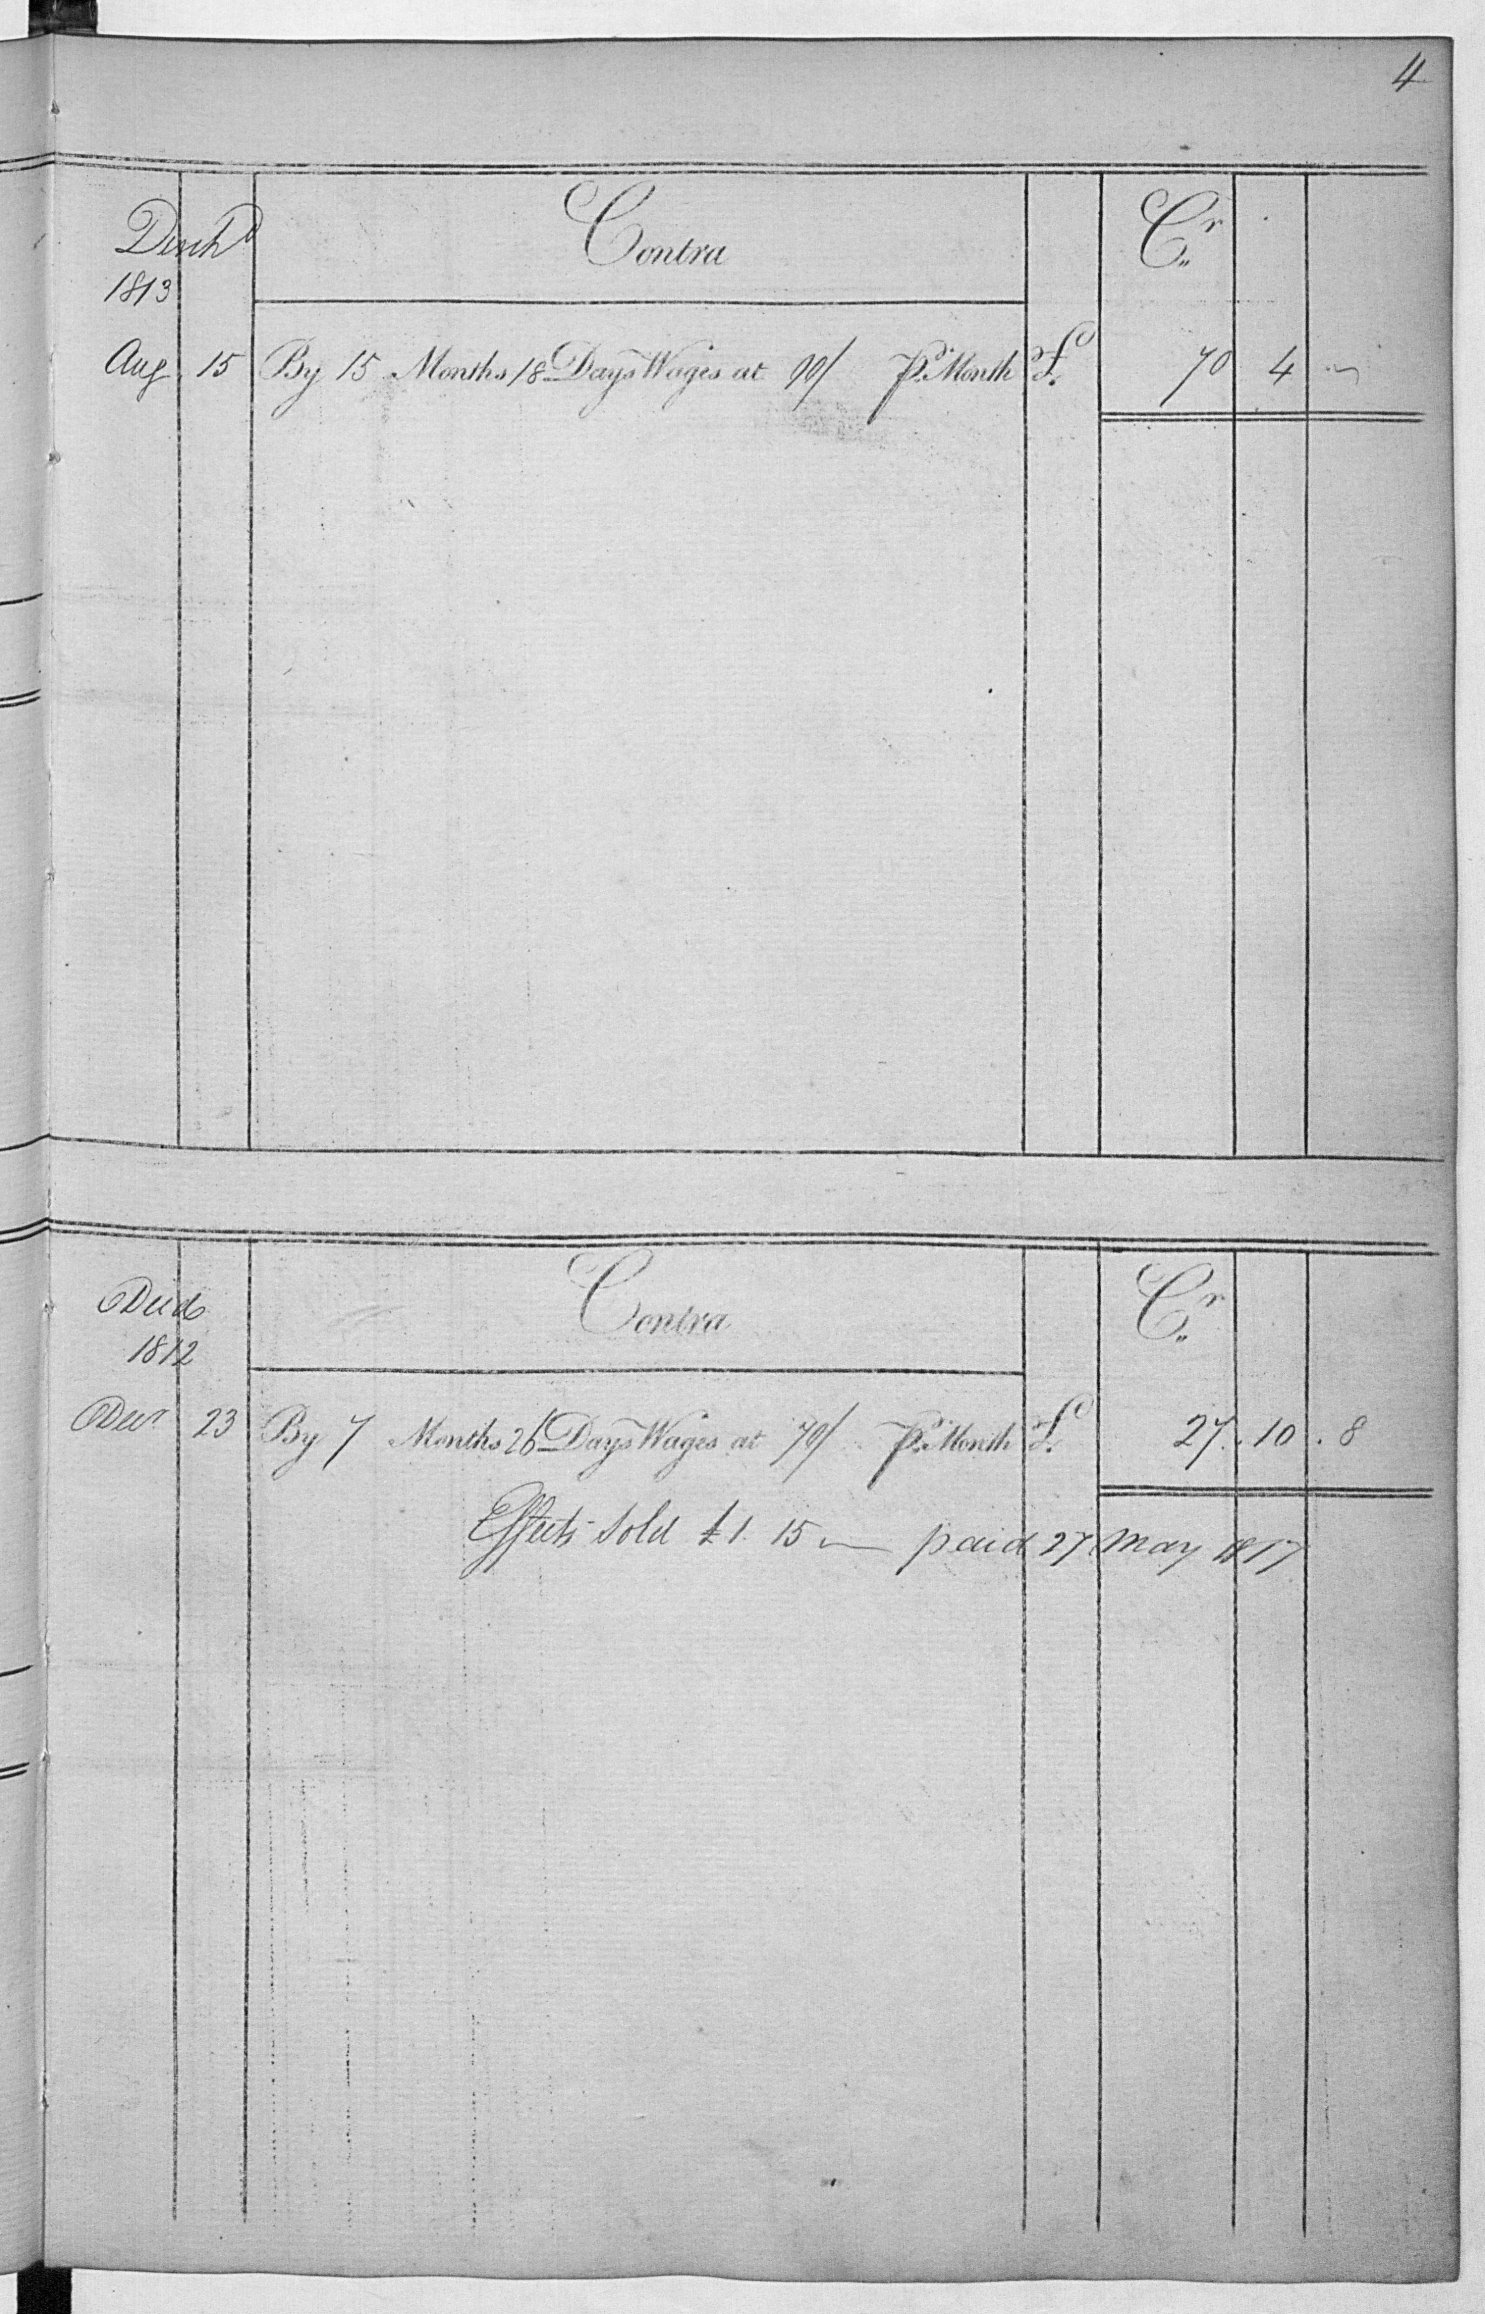 4
Contra Cr
Disch^d
1813
Aug 15 By 15 Months 18 Days Wages at 90/ P. Month £ 70 4 "
Contra Cr
Died
1812
Decr 23 By 7 Months 26 Days Wages at 70/ P. Month £ 27 . 10 . 8
Effects Sold £1. 15 — paid 27 May 1817